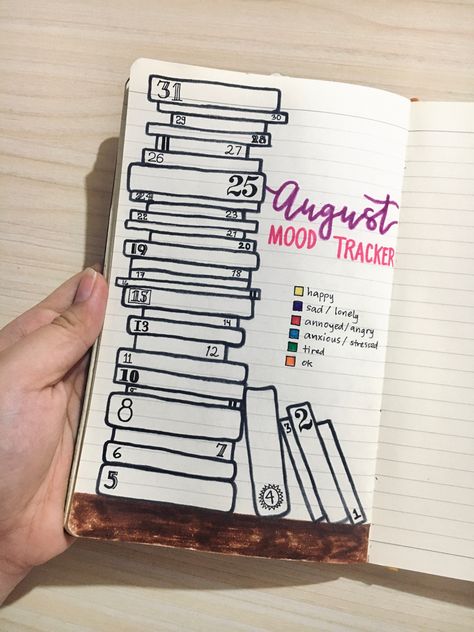 31
30
29
28
27
26
25
August
MOOD TRACKER
24
23
22
21
20
19
18
17
15
14
13
12
11
10
9
8
7
6
5
4
3
2
1
happy
sad / lonely
annoyed/angry
anxious / stressed
tired
ok